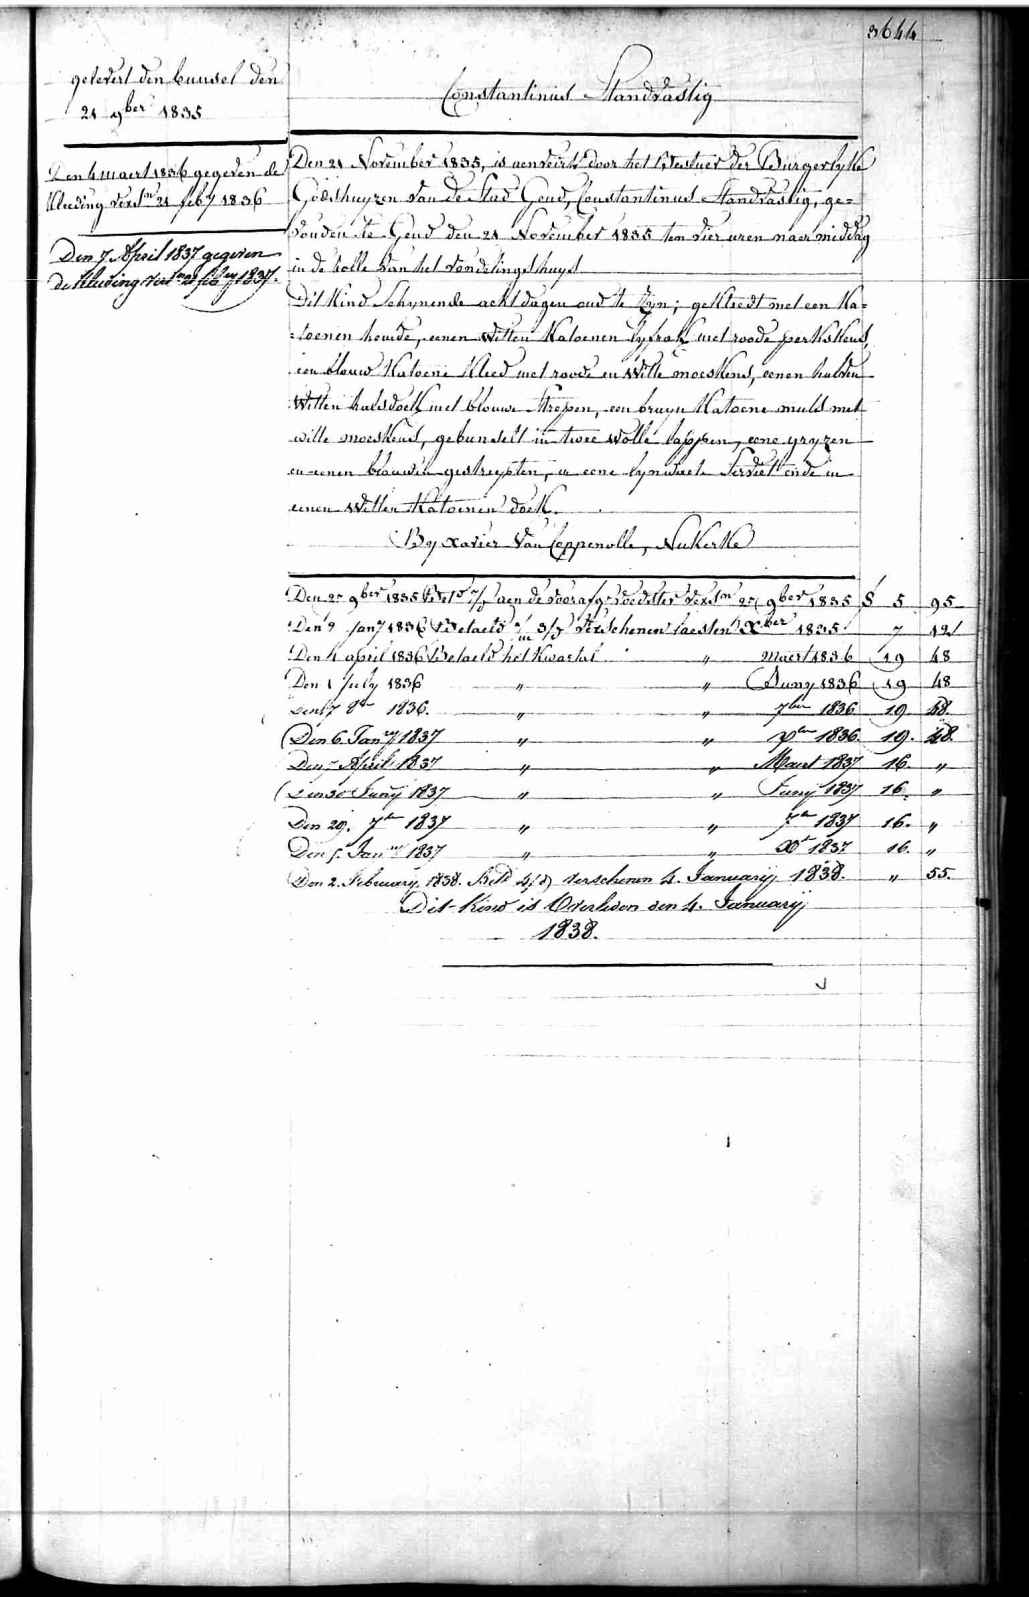 3644
gelevert den bunsel den
21 9ber 1835
Den 4 maert 1836 gegeven de
kleeding versn 21 feby 1836
Den 7 April 1837 gegeven
de kleeding versn 21 feby 1837.
Constantinus Standvastig
Den 21 November 1835, is aenveird door het Bestuer der Burgerlyke
Godshuyzen van de Stad Gend, Constantinus Standvastig, ge=
vonden te Gend den 21 November 1835 ten vier uren naer middag
in de rolle van het vondelingshuys
Dit kind schynende acht dagen oud te zyn; gekleedt met een ka=
=toenen houde, eenen witten katoenen lyfrok met roode perkskens,
een blouw katoene kleed met roode en witte moeskens, eenen halven
witten halsdoek met blouwe strepen, een bruyn katoene muts met
witte moeskens, gebunselt in twee wolle lappen, eene gryzen
en eenen blauwen gestreepten, in eene lynwaete Serviet ende in
eenen witten katoenen doek.
By Xavier Van Coppenolle, Nukerke
Den 25 9ber 1835 aen de voorafge voedster versn 25 9ber 1835 5 95
Den 9 Jany 1836 Betaeld 3/m verschenen laesten Xber 1835 7
Den 4 april 1836 Betaeld het Kwartal " maert 1836 19 48
Den 1 July 1836 " " Juny 1836 19 48
Den 7 8ber 1836. " " 7ber 1836 19 48.
Den 6. Jany 1837 " " Xber 1836. 19. 48.
Den 7 April 1837 " " Maert 1837 16. "
Den 30 Junij 1837 " " Junij 1837 16. "
Den 29. 7br 1837 " " 7br 1837 16. "
Den 5. Janry 1837 " " Xr 1837 16. "
Den 2. February. 1838. Betd 4/d verschenen 4. Januarij 1838. " 55.
Dit Kind is Overleden den 4. Januarij
1838.